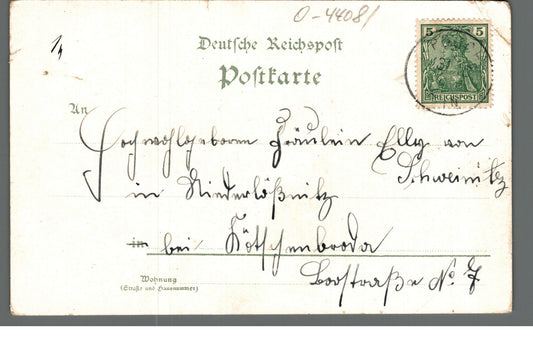 O-44081
Deutsche Reichspost
Postkarte
5 5
REICHSPOST
An
Hochwohlgeboren Fräulein Elly von
Schweinitz
in Niederlößnitz
in bei Kötschenbroda
Wohnung
(Straße und Hausnummer)
No. 7